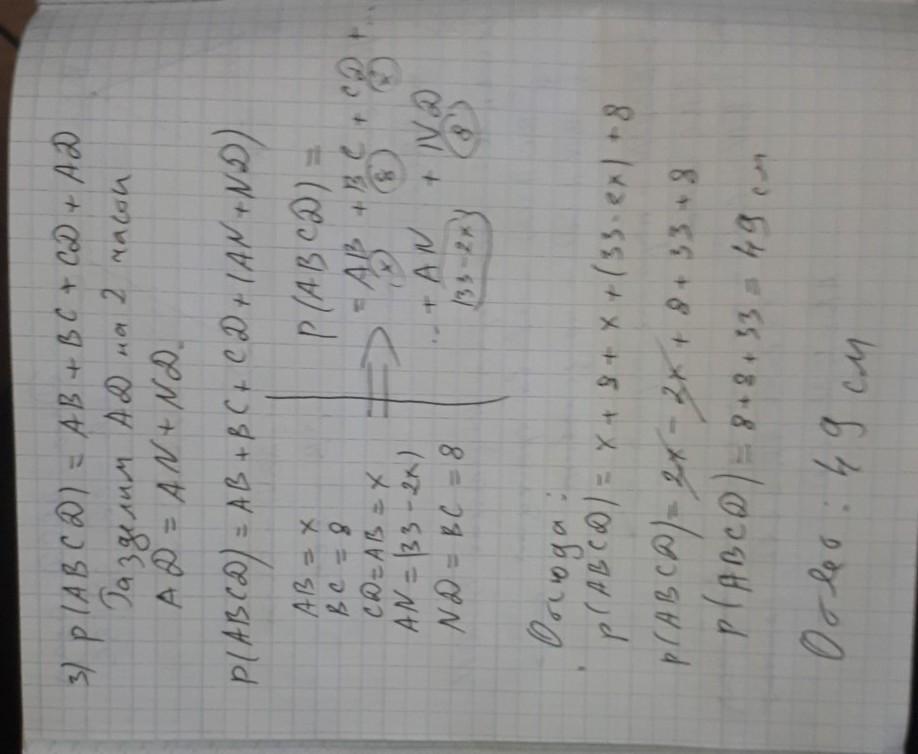 3) P(ABCD) = AB + BC + CD + AD
Разделим AD на 2 части
AD = AN + ND.
P(ABCD) = AB + BC + CD + (AN + ND)
AB = x
BC = 8
CD = AB = x
AN = (33 - 2x)
ND = BC = 8
⟹
P(ABCD) =
= AB + BC + CD + ..
(x) (8) (x)
.. + AN + ND
(33 - 2x) (8)
Отсюда:
P(ABCD) = x + 8 + x + (33 - 2x) + 8
P(ABCD) = 2x - 2x + 8 + 33 + 8
P(ABCD) = 8 + 8 + 33 = 49 см
Ответ: 49 см